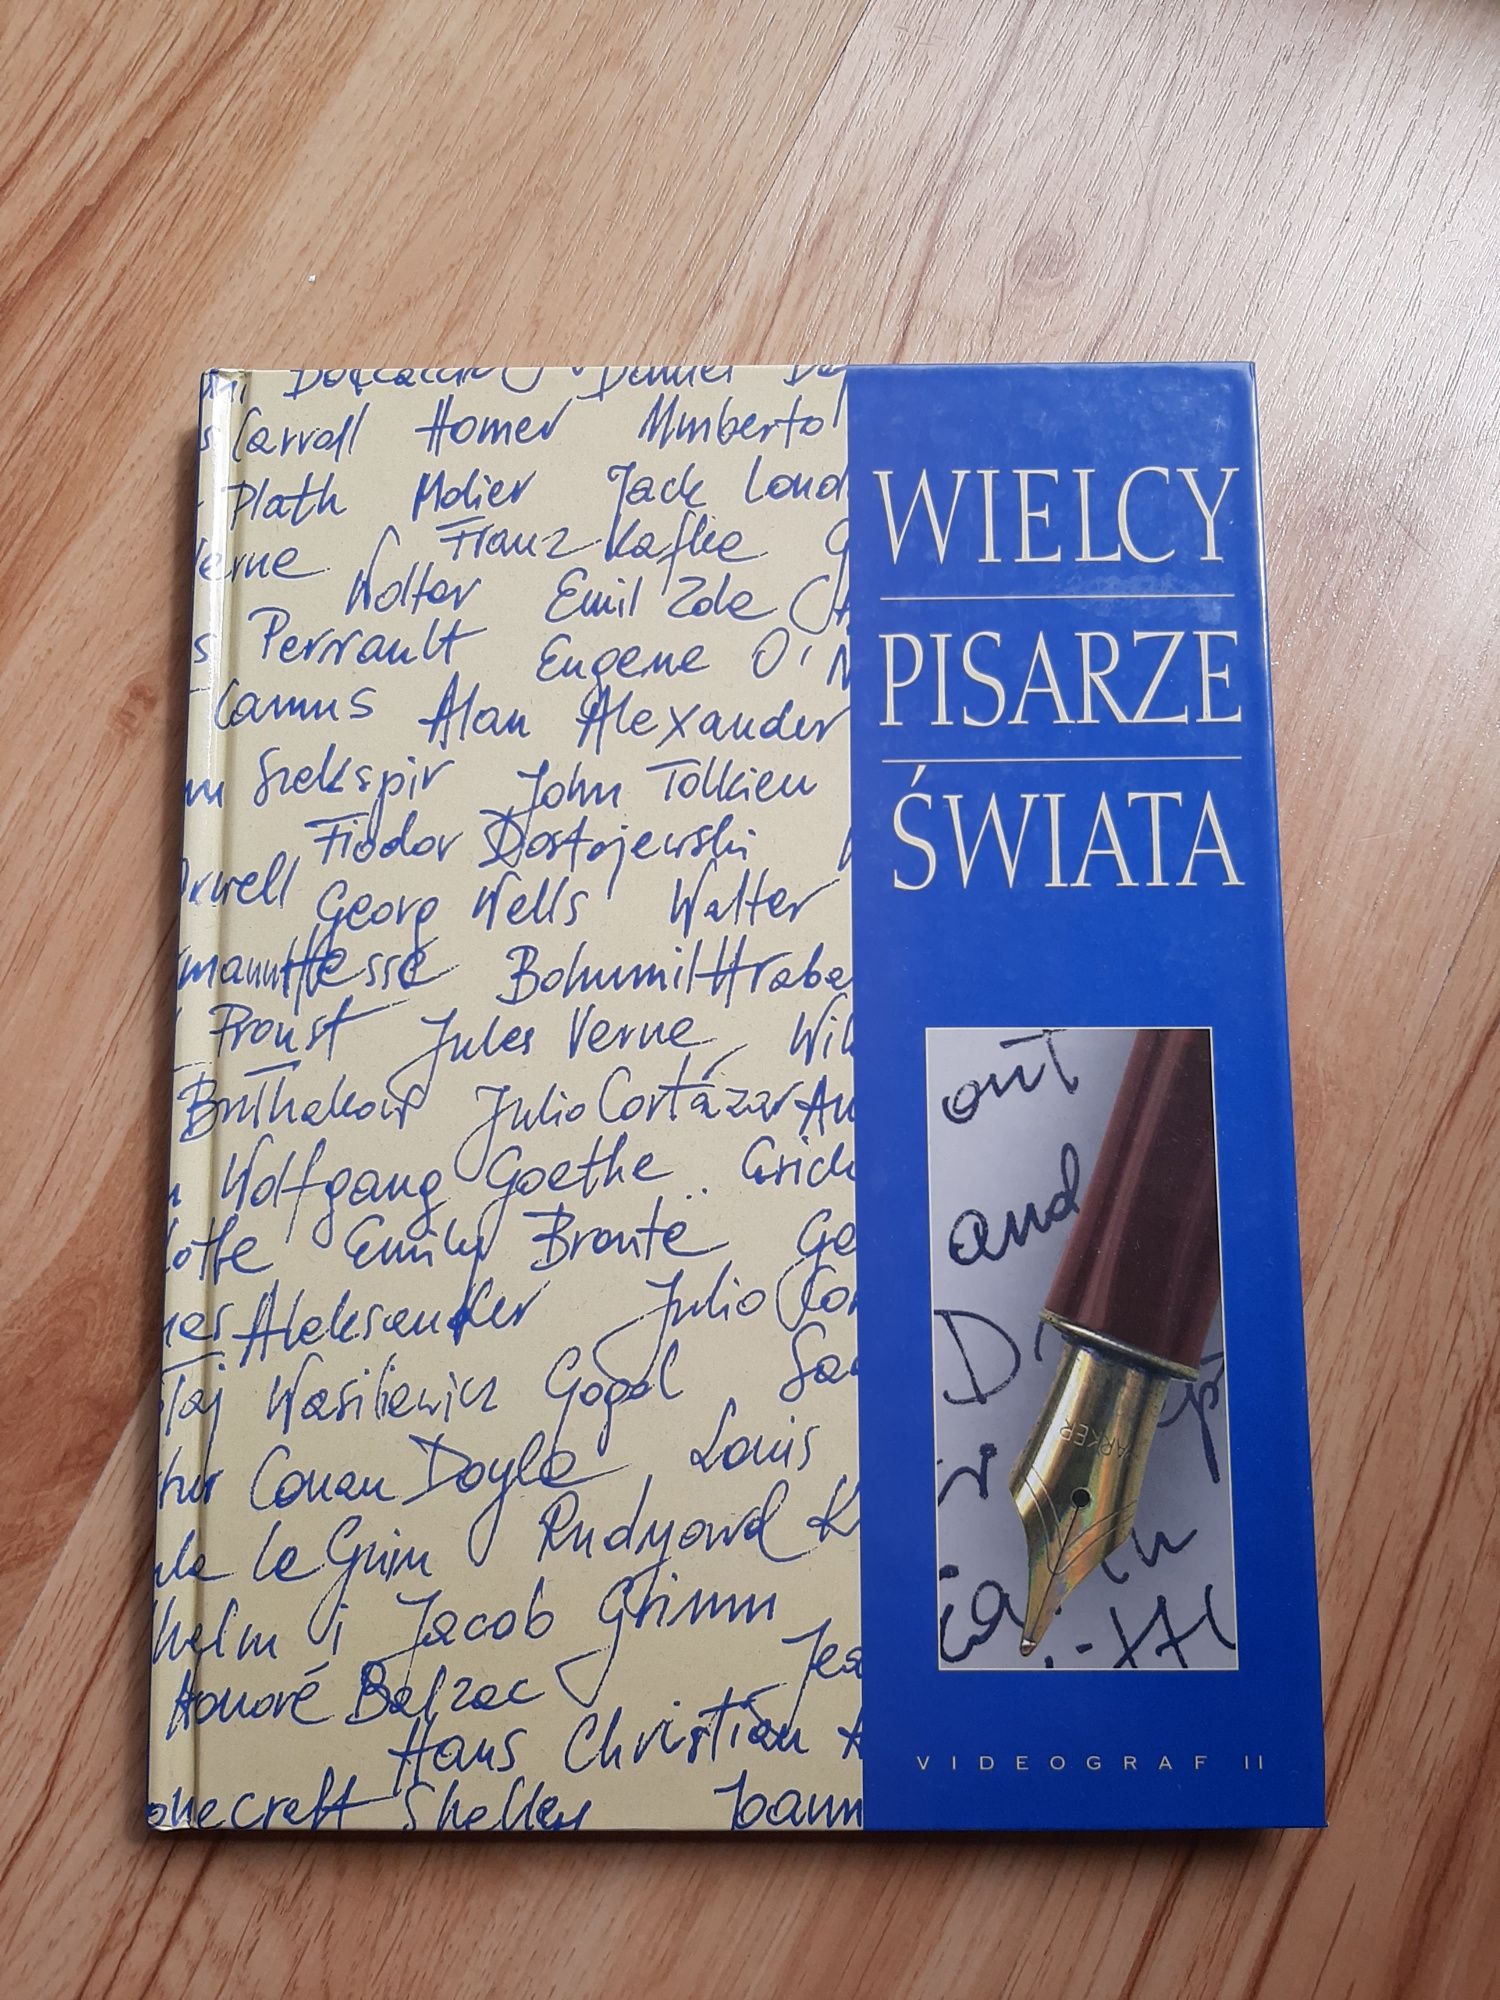 Carroll Homer Umberto
Plath Molier Jack Lond
erne Franz Kafka
Wolter Emil Zola
s Perrault Eugene O'N
Camus Alan Alexander
Szekspir John Tolkien
Fiodor Dostojewski
rwell Georg Wells Walter
rmann Hesse Bohumil Hraba
Proust Jules Verne Wil
Julio Cortázar An
Wolfgang Goethe Erich
lotte Emily Brontë Ge
Aleksander Julio Cor
łaj Wasiliewicz Gogol
Conan Doyle Louis
ula le Guin Rudyard K
lhelm i Jacob Grimm
Honoré Balzac Jea
Hans Christian A
onecraft Shelley Joann
WIELCY
PISARZE
ŚWIATA
out
and
D
ARKER
VIDEOGRAF II